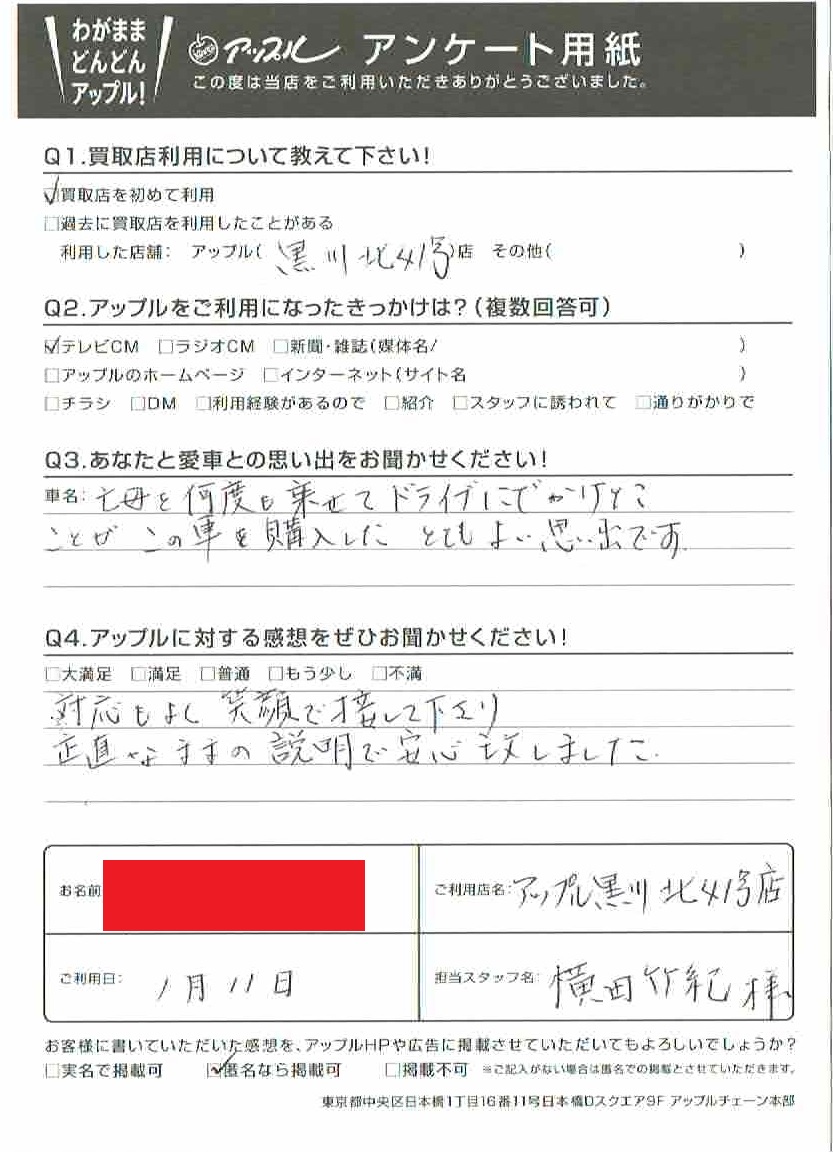 わがまま
どんどん
アップル!
アップル アンケート用紙
この度は当店をご利用いただきありがとうございました。
Q1.買取店利用について教えて下さい!
☑買取店を初めて利用
□過去に買取店を利用したことがある
利用した店舗: アップル(黒川北41号)店 その他( )
Q2.アップルをご利用になったきっかけは?(複数回答可)
☑テレビCM □ラジオCM □新聞・雑誌(媒体名/ )
□アップルのホームページ □インターネット(サイト名 )
□チラシ □DM □利用経験があるので □紹介 □スタッフに誘われて □通りがかりで
Q3.あなたと愛車との思い出をお聞かせください!
車名: 亡母を何度も乗せてドライブにでかけたこ
ことが この車を購入した とてもよい思い出です。
Q4.アップルに対する感想をぜひお聞かせください!
□大満足 □満足 □普通 □もう少し □不満
対応もよく 笑顔で接して下さり
正直なままの説明で安心致しました。
お名前
ご利用店名: アップル黒川北41号店
ご利用日: 1月11日
担当スタッフ名: 横田 紀様
お客様に書いていただいた感想を、アップルHPや広告に掲載させていただいてもよろしいでしょうか?
□実名で掲載可 ☑匿名なら掲載可 □掲載不可 ※ご記入がない場合は匿名での掲載とさせていただきます。
東京都中央区日本橋1丁目16番11号日本橋Dスクエア9F アップルチェーン本部